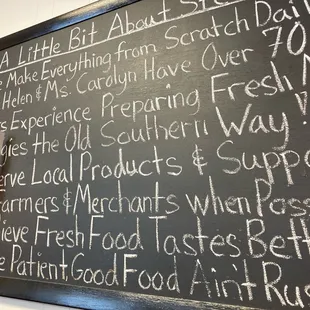 A Little Bit About St
e Make Everything from Scratch Daily
Helen & Ms. Carolyn Have Over 70
rs Experience Preparing Fresh
gies the Old Southern Way!
erve Local Products & Suppo
armers & Merchants when Poss
lieve Fresh Food Tastes Bett
e Patient Good Food Ain't Rus